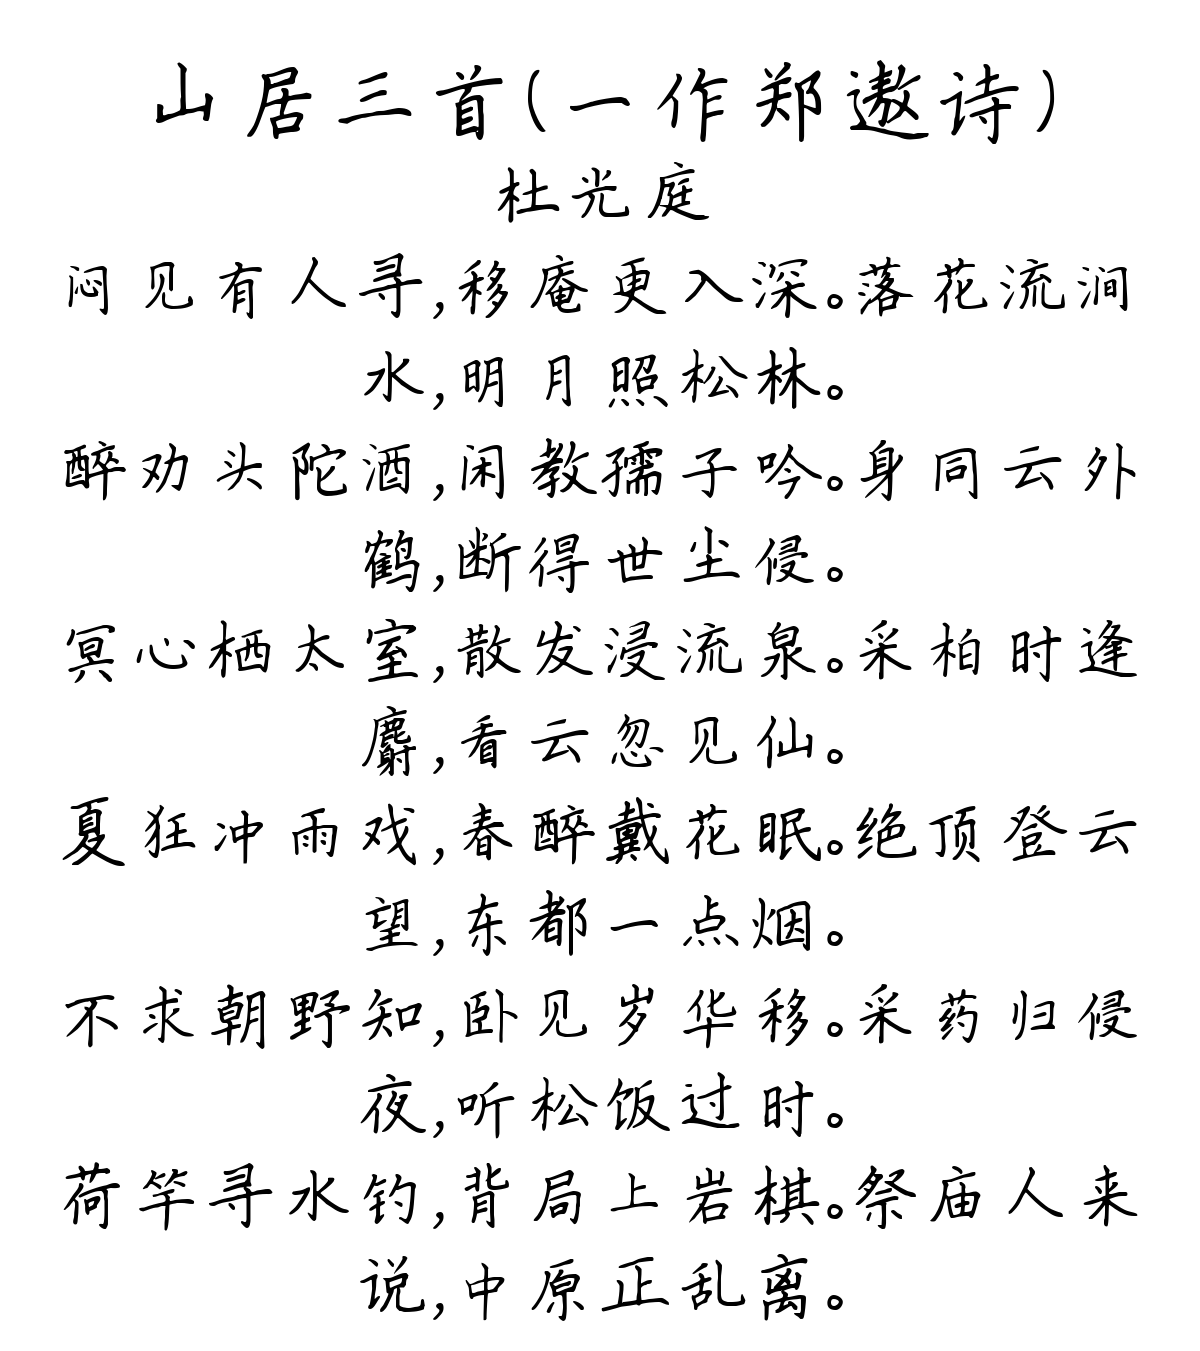 山居三首(一作郑遨诗)
杜光庭
闷见有人寻,移庵更入深。落花流涧
水,明月照松林。
醉劝头陀酒,闲教孺子吟。身同云外
鹤,断得世尘侵。
冥心栖太室,散发浸流泉。采柏时逢
麝,看云忽见仙。
夏狂冲雨戏,春醉戴花眠。绝顶登云
望,东都一点烟。
不求朝野知,卧见岁华移。采药归侵
夜,听松饭过时。
荷竿寻水钓,背局上岩棋。祭庙人来
说,中原正乱离。